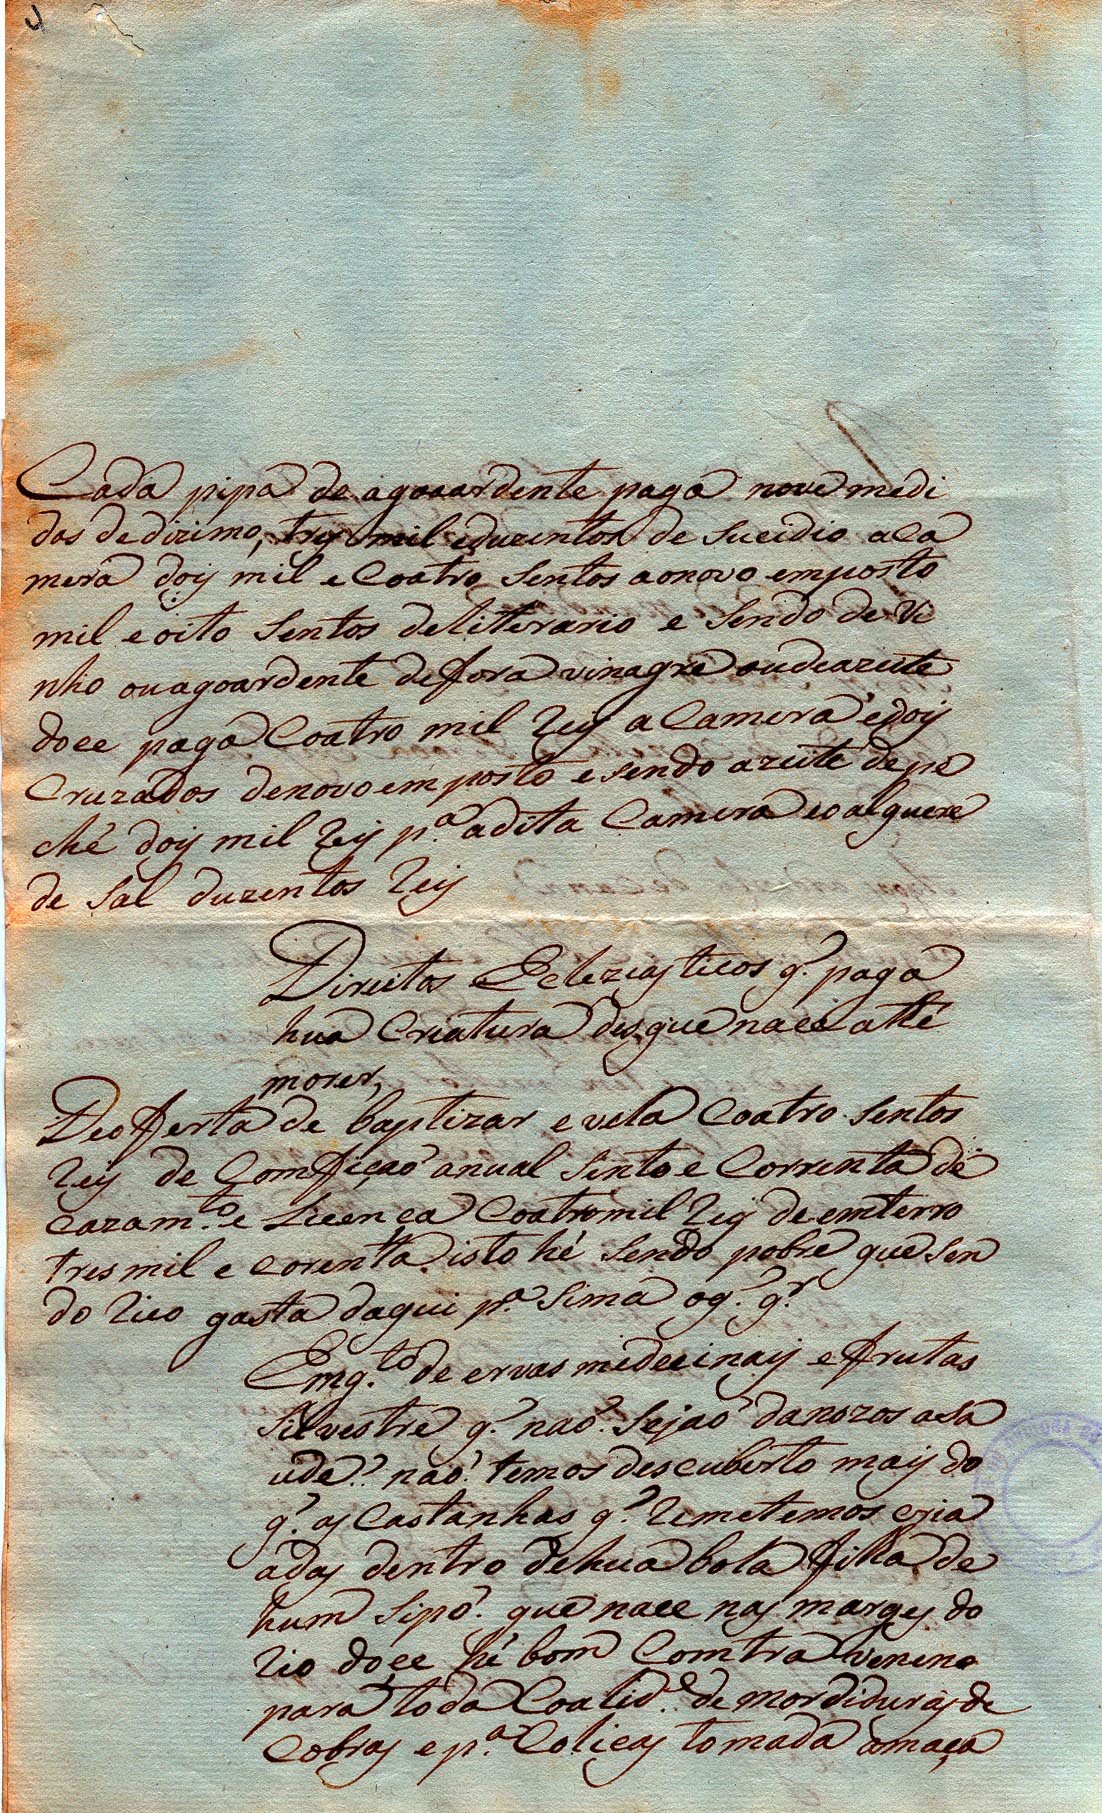 Cada pipa de agoaardente paga nove medi
dos de dizimo, trij mil eduzentos de Sucidio a Ca
mera doij mil e Coatro Sentos aonovo emposto
mil e oito Sentos deliterario e Sendo de Vi
nho ou agoardente defora vinagre oudeazeite
doce paga Coatro mil Reij a Camera edoij
Cruzados denovo emposto e sendo azeite de pe
che doij mil Reij p.ª adita Camera eo alguere
de Sal duzentos Reij
Direitos Ecleziasticos q.' paga
hua Criatura des que nace athé
morer,
De oferta de baptizar e vela Coatro Sentos
Reij de Comfiçaõ anual Sento e Correnta de
Cazam.to e Licença Coatro mil Reij de emterro
tres mil e Corenta isto hé Sendo pobre que Sen
do Rico gasta daqui p.ª Sima o q.' q.r
Emq.to de ervas midecinaij e frutas
Silvestre q.' naõ Sejaõ danozos a Sa
ude.' naõ temos descuberto maij do
q.' as Castanhas q.' Remetemos cria
adas dentro de hua bola filha de
hum Sipó. que nace nas marges do
Rio doce hé bom Comtra veneno
para toda Coalid.e de mordiduras de
Cobras e p.ª Colicas tomada amaça